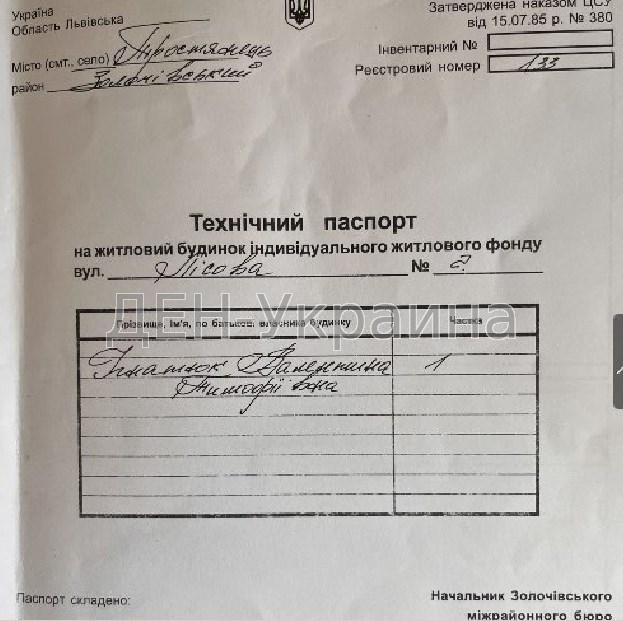 Україна
Область Львівська
Місто (смт., село) Тростянець
район Золочівський
Затверджена наказом ЦСУ
від 15.07.85 р. № 380
Інвентарний №
Реєстровий номер 133
Технічний паспорт
на житловий будинок індивідуального житлового фонду
вул. Лісова № 2
ДЕН-Украина
Прізвище, ім'я, по батькові власника будинку Частка
Ігнатюк Валентина 1
Тимофіївна
Паспорт складено:
Начальник Золочівського
міжрайонного бюро